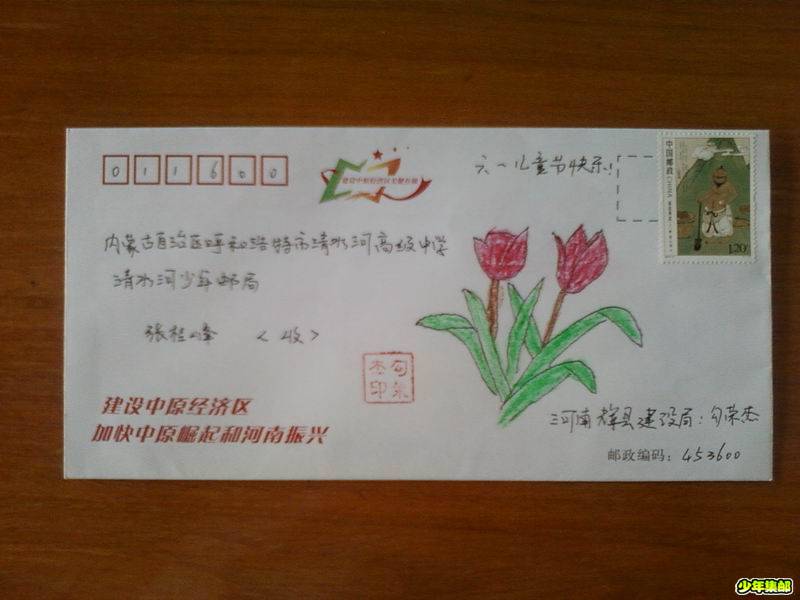 011600
建设中原经济区
六一儿童节快乐!
中国邮政
CHINA
1.20元
内蒙古自治区呼和浩特市清水河高级中学
清水河少年邮局
张桂峰 <收>
句荣杰印
建设中原经济区
加快中原崛起和河南振兴
河南辉县建设局:句荣杰
邮政编码:453600
少年集邮